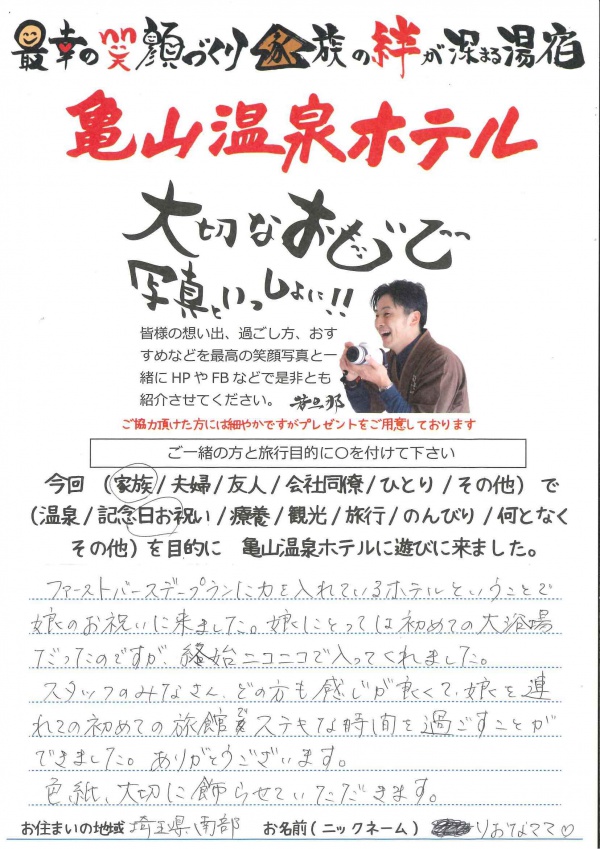 最幸の笑顔づくり 家族の絆が深まる湯宿
亀山温泉ホテル
大切なおもいで
写真といっしょに!!
皆様の想い出、過ごし方、おす
すめなどを最高の笑顔写真と一
緒に HP や FB などで是非とも
紹介させてください。 若旦那
ご協力頂けた方には細やかですがプレゼントをご用意しております
ご一緒の方と旅行目的に〇を付けて下さい
今回 (家族/夫婦/友人/会社同僚/ひとり/その他) で
(温泉/記念日お祝い/療養/観光/旅行/のんびり/何となく
その他) を目的に 亀山温泉ホテルに遊びに来ました。
ファーストバースデープランに力を入れているホテルということで
娘のお祝いに来ました。娘にとっては初めての大浴場
だったのですが、終始ニコニコで入ってくれました。
スタッフのみなさん、どの方も感じが良くて、娘を連
れての初めての旅館でステキな時間を過ごすことが
できました。ありがとうございます。
色紙、大切に飾らせていただきます。
お住まいの地域 埼玉県南部 お名前(ニックネーム) りおなママ♡